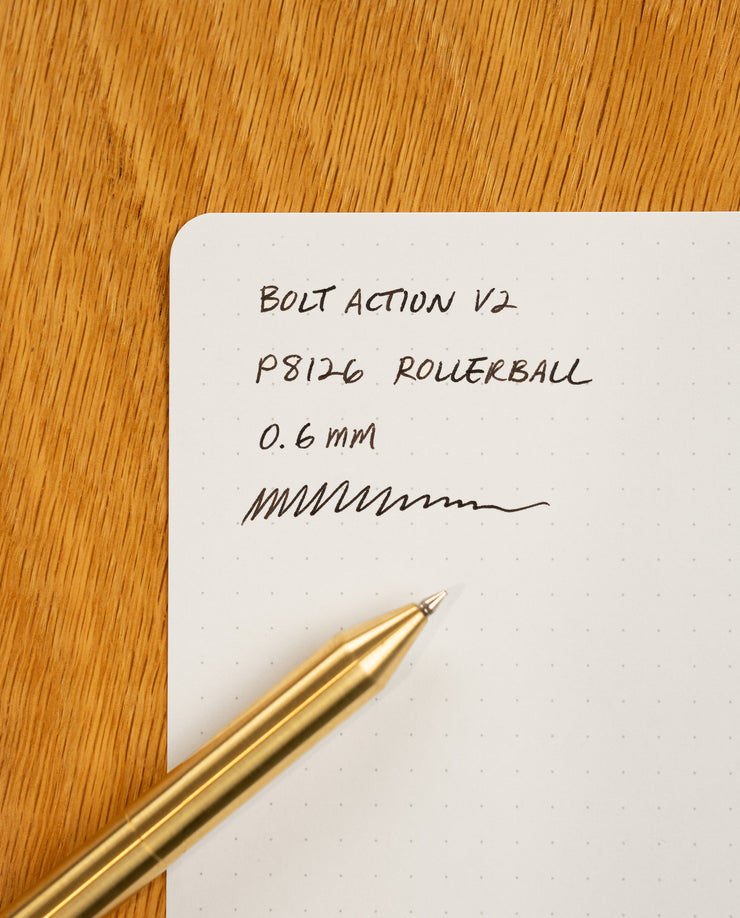 BOLT ACTION V2
P8126 ROLLERBALL
0.6 MM